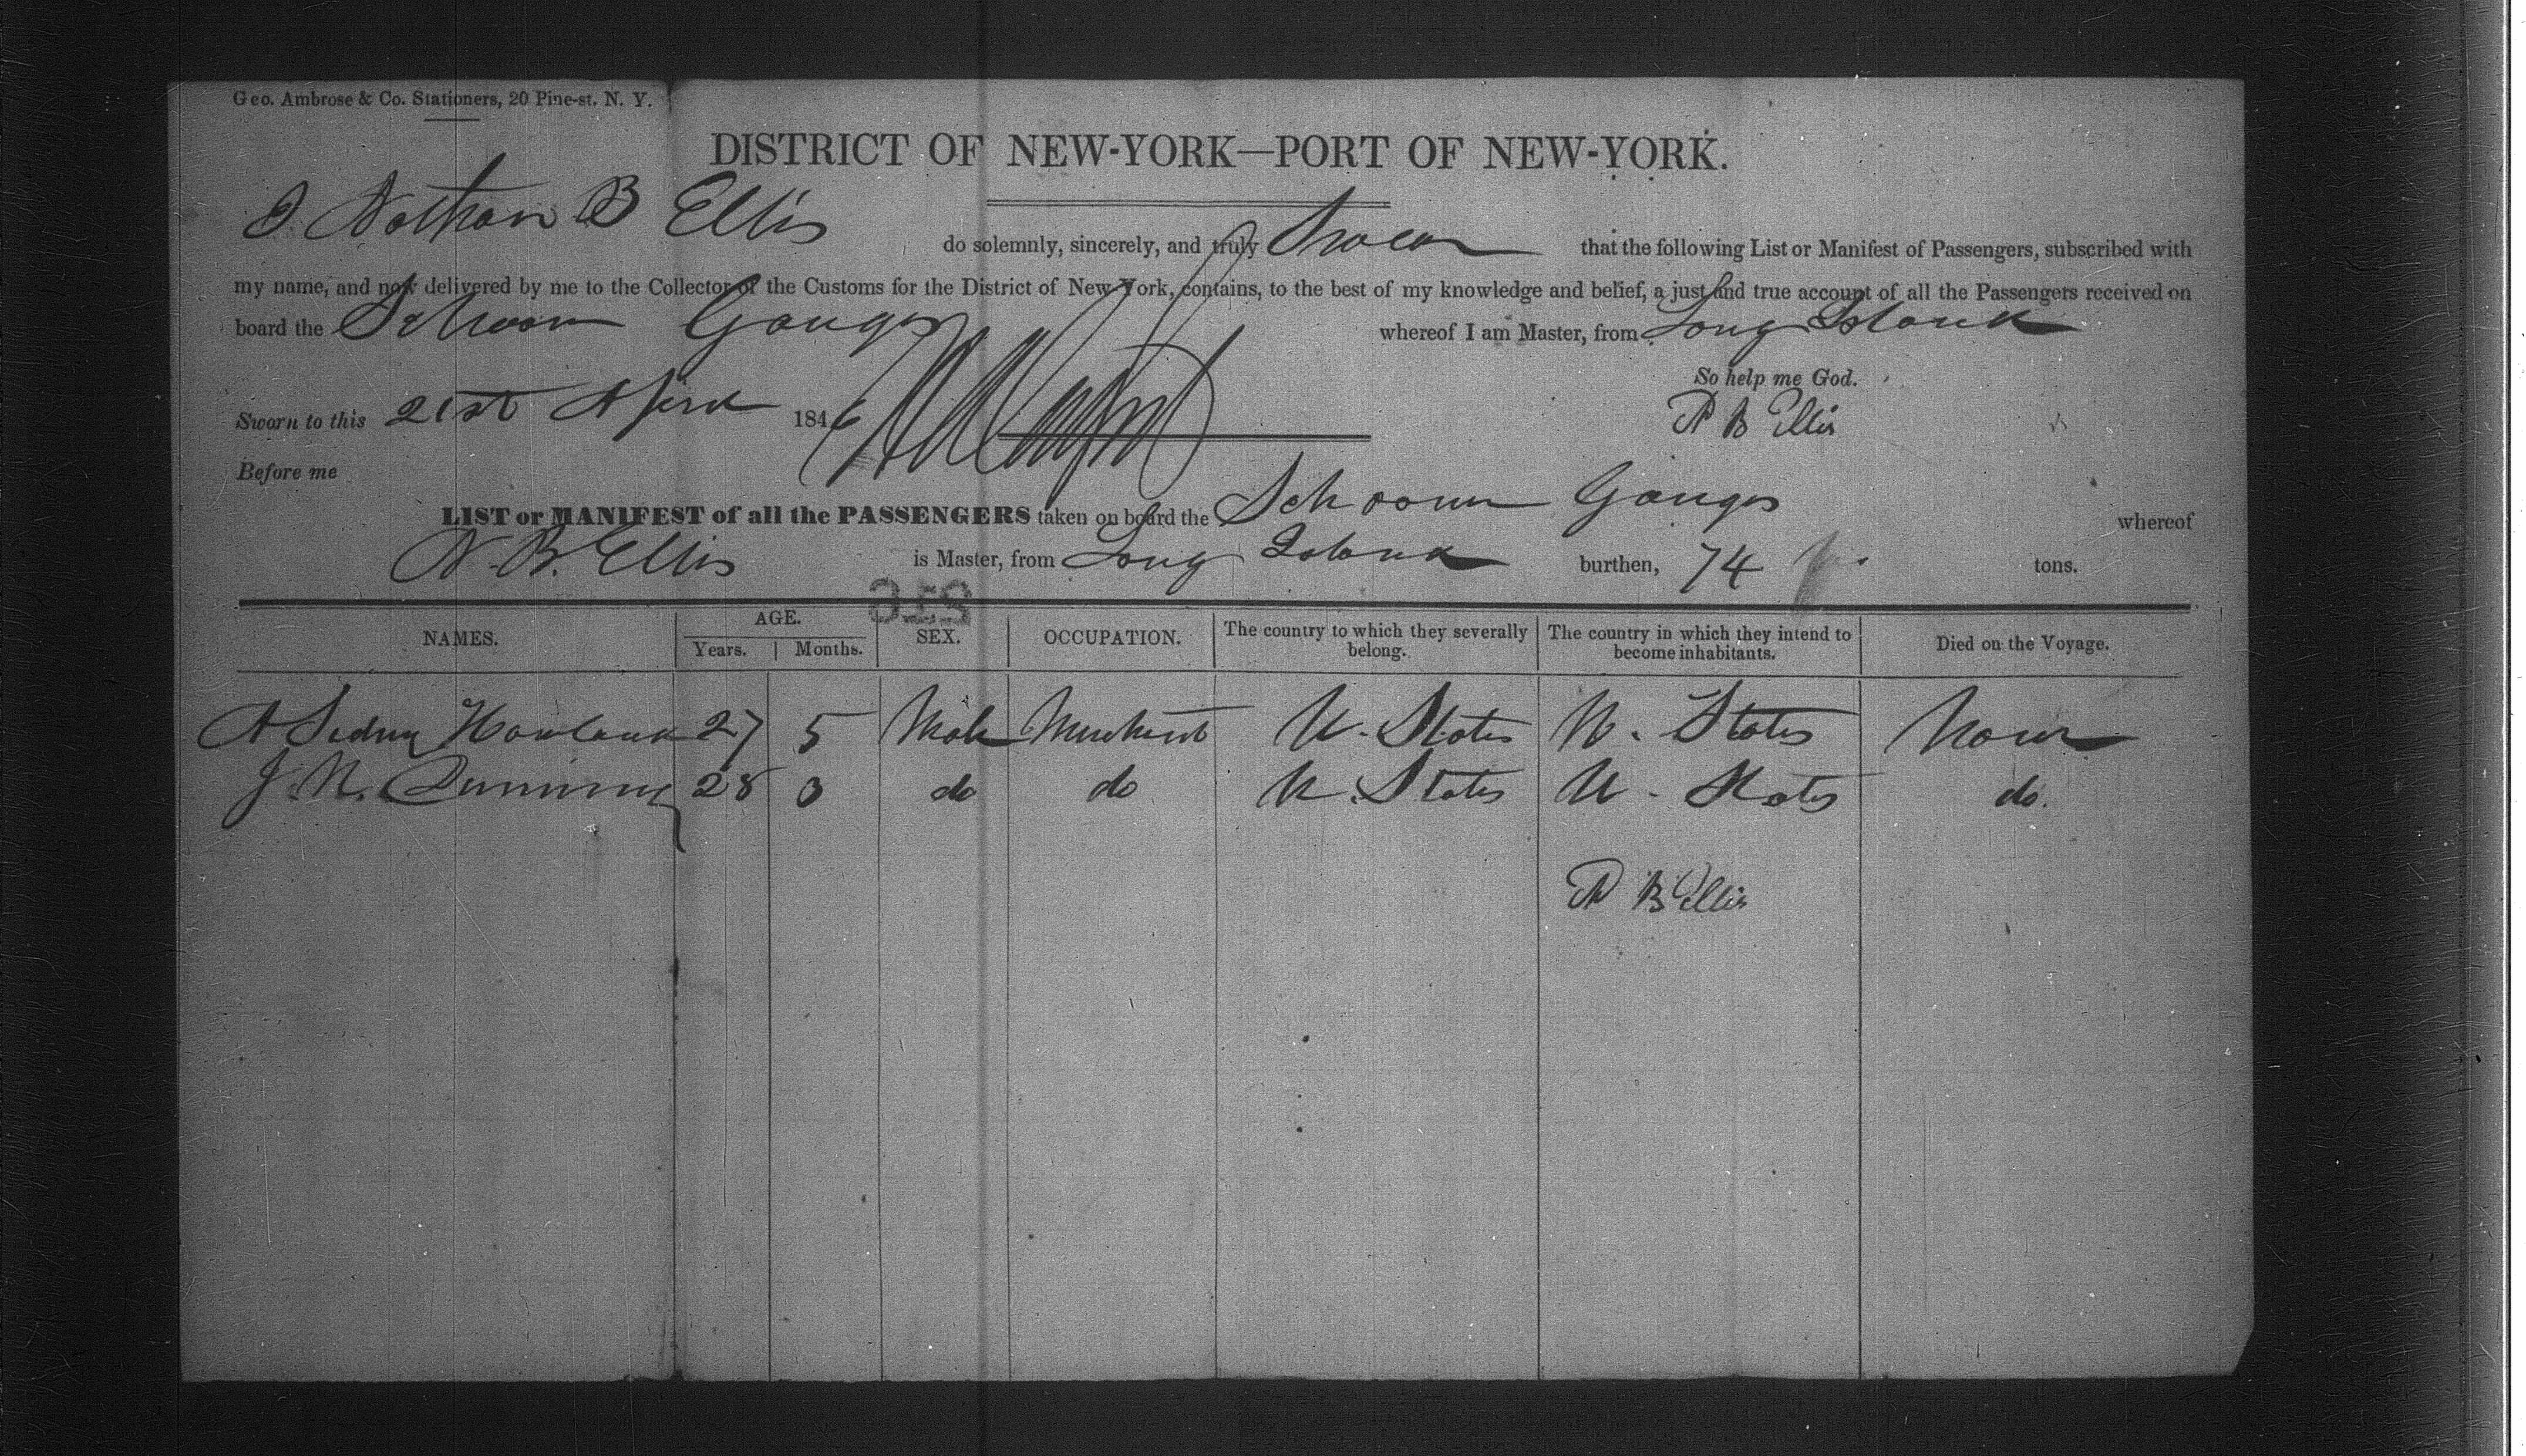 Geo. Ambrose & Co. Stationers, 20 Pine-st. N. Y.
DISTRICT OF NEW-YORK—PORT OF NEW-YORK.
I Nathan B Ellis do solemnly, sincerely, and truly Swear that the following List or Manifest of Passengers, subscribed with
my name, and now delivered by me to the Collector of the Customs for the District of New York, contains, to the best of my knowledge and belief, a just and true account of all the Passengers received on
board the Schooner Ganges whereof I am Master, from Long Island
So help me God.
Sworn to this 21st April 1846 N B Ellis
Before me
LIST or MANIFEST of all the PASSENGERS taken on board the Schooner Ganges whereof
N. B. Ellis is Master, from Long Island burthen, 74 tons.
NAMES. AGE. Years. Months. SEX. OCCUPATION. The country to which they severally belong. The country in which they intend to become inhabitants. Died on the Voyage.
A Sidney Howland 27 5 Male Merchant U. States U. States None
J. N. 28 3 do do U. States U. States do.
N B Ellis